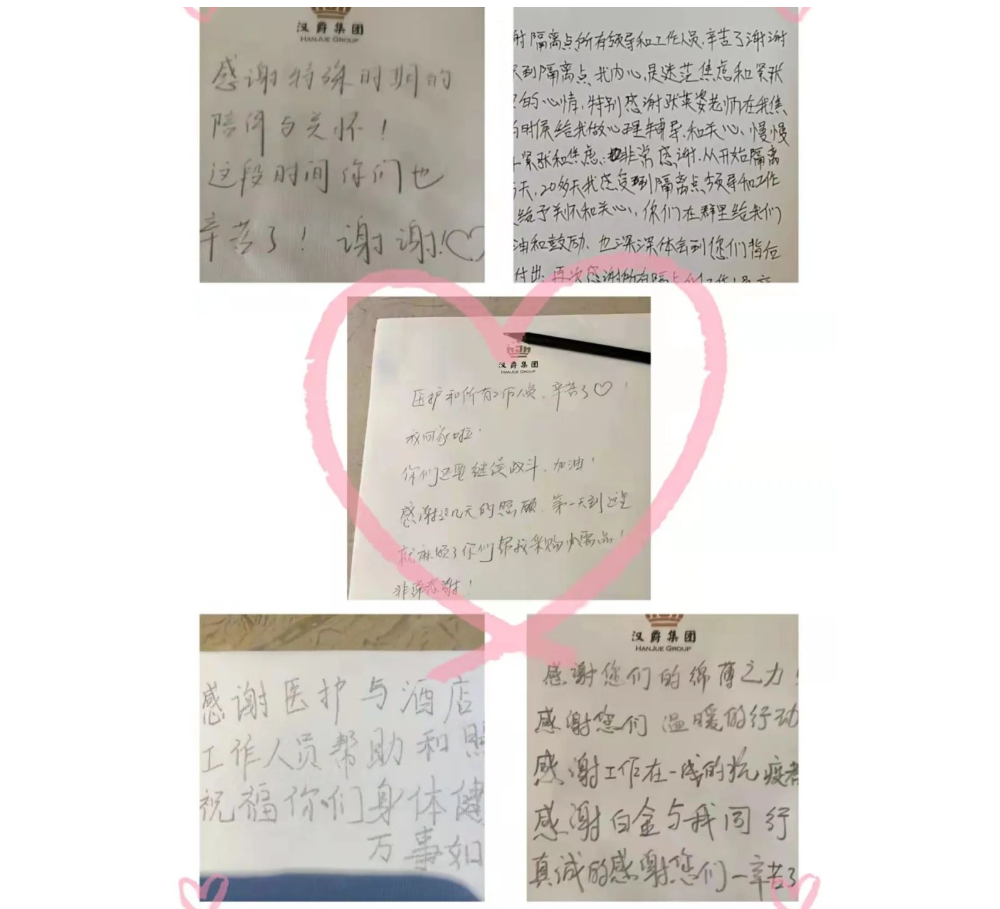 汉爵集团
HANJUE GROUP
感谢特殊时期的
陪伴与关怀！
这段时间你们也
辛苦了！谢谢！♡
谢隔离点所有领导和工作人员,辛苦了谢谢
到隔离点,我内心,是迷茫焦虑和紧张
的心情,特别感谢张英姿老师在我焦
时候给我做心理辅导,和关心,慢慢
紧张和焦虑,非常感谢,从开始隔离
天,20多天我感受到隔离点领导和工作
给予关怀和关心,你们在群里给我们
油和鼓励,也深深体会到您们背后
付出,再次感谢所有隔
汉爵集团
HANJUE GROUP
医护和所有工作人员,辛苦了♡！
我回家啦！
你们还要继续战斗,加油！
感谢这几天的照顾,第一天到这里
就麻烦了你们帮我采购
非常感谢！
感谢医护与酒店
工作人员帮助和照
祝福你们身体健
万事如
汉爵集团
HANJUE GROUP
感谢您们的绵薄之力！
感谢您们温暖的行动
感谢工作在一线的抗疫者
感谢白金与我同行
真诚的感谢您们一辛苦了